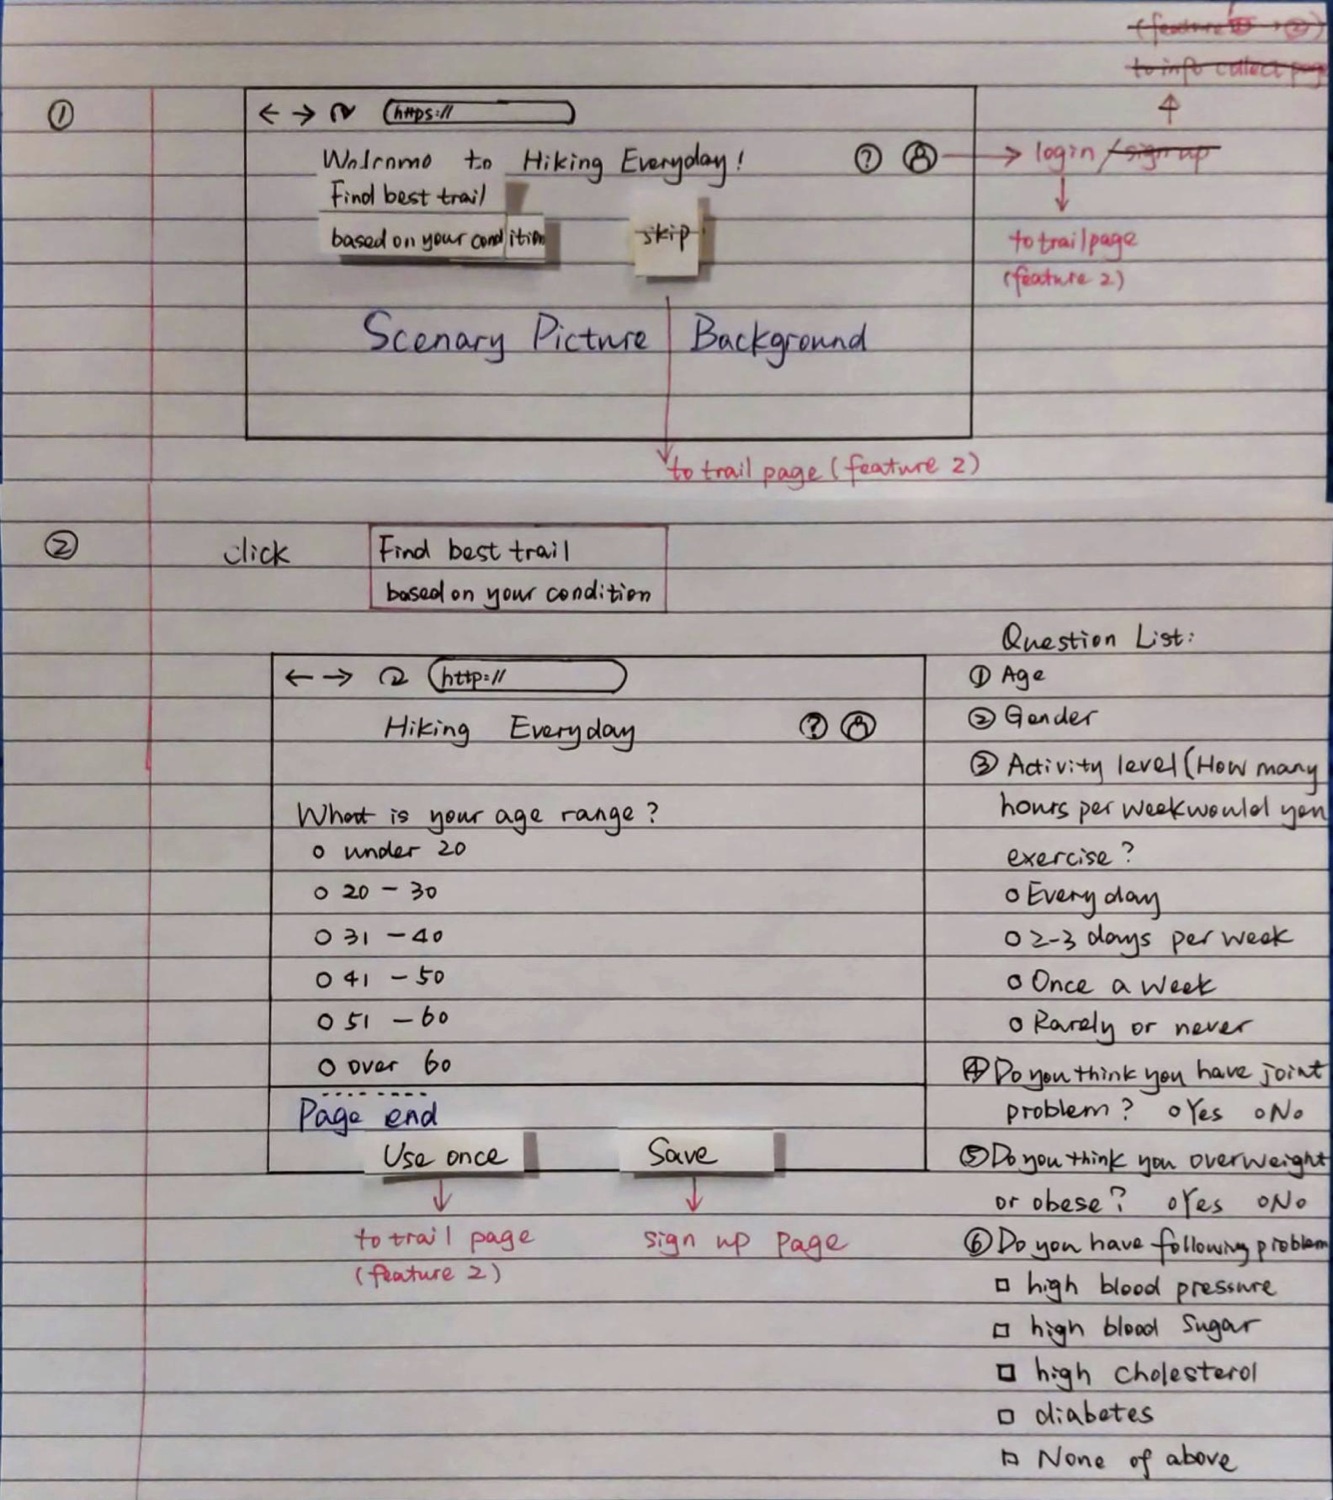 (feature ① → ②)
to info collect page
①
https://
Welcome to Hiking Everyday!
?
login / sign up
Find best trail
based on your condition
skip
to trail page
(feature 2)
Scenary Picture Background
to trail page (feature 2)
②
click
Find best trail
based on your condition
http://
Hiking Everyday
?
What is your age range?
under 20
20 - 30
31 - 40
41 - 50
51 - 60
over 60
Page end
Use once
Save
to trail page
(feature 2)
sign up page
Question List:
① Age
② Gender
③ Activity level (How many
hours per week would you
exercise?
Every day
2-3 days per week
Once a week
Rarely or never
④ Do you think you have joint
problem? Yes No
⑤ Do you think you overweight
or obese? Yes No
⑥ Do you have following problem
high blood pressure
high blood sugar
high cholesterol
diabetes
None of above